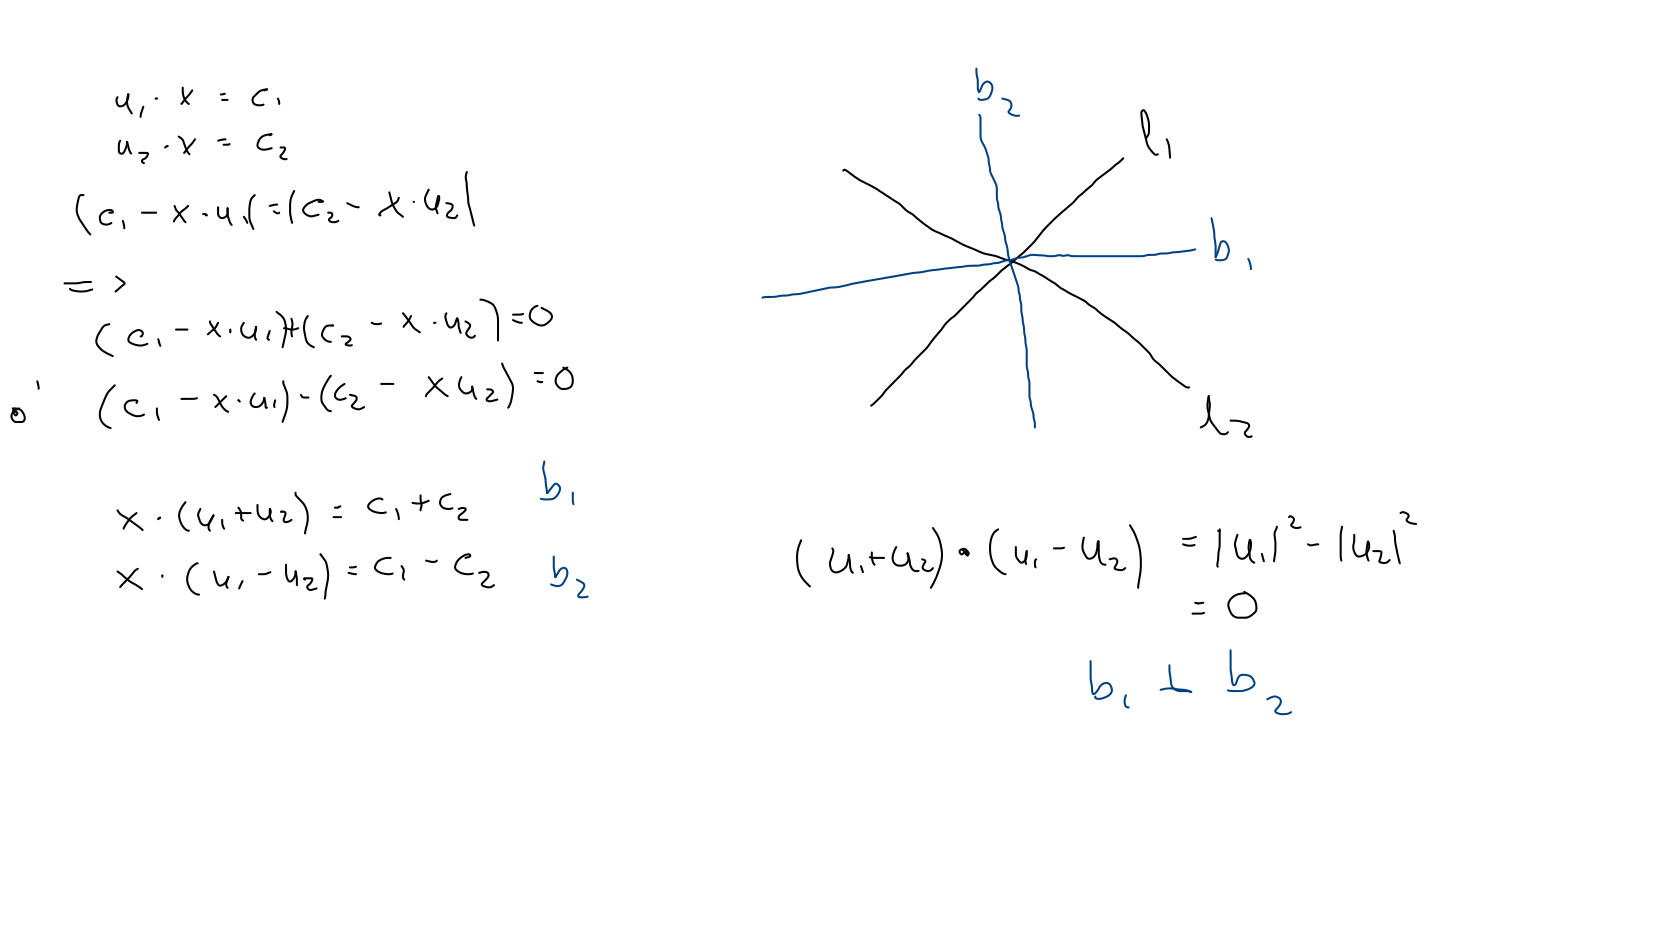 u₁ · x = c₁
u₂ · x = c₂
|c₁ - x · u₁| = |c₂ - x · u₂|
=>
(c₁ - x · u₁) + (c₂ - x · u₂) = 0
or (c₁ - x · u₁) - (c₂ - x u₂) = 0
x · (u₁ + u₂) = c₁ + c₂ b₁
x · (u₁ - u₂) = c₁ - c₂ b₂
b₂
l₁
b₁
l₂
(u₁ + u₂) · (u₁ - u₂) = |u₁|² - |u₂|²
= 0
b₁ ⊥ b₂